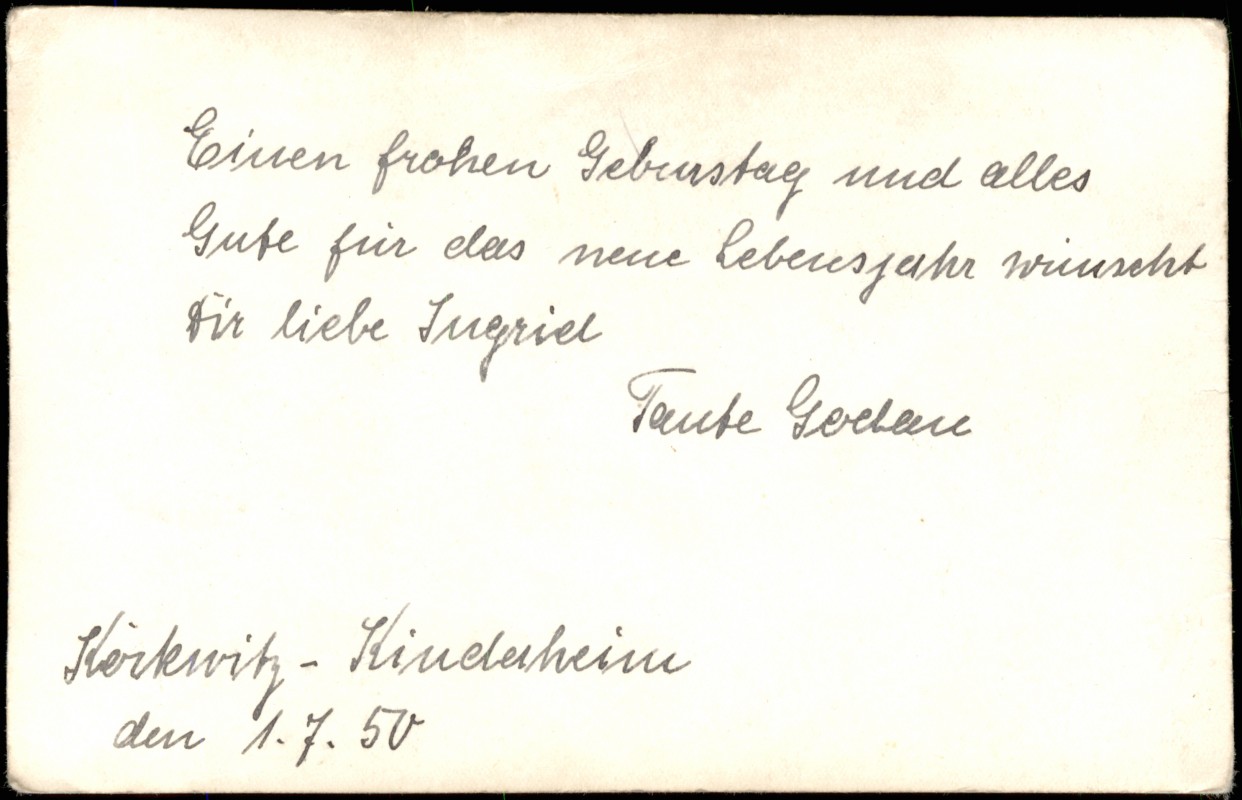 Einen frohen Geburstag und alles
Gute für das neue Lebensjahr wünscht
Dir liebe Ingrid
Tante
Körkwitz - Kinderheim
den 1.7.50